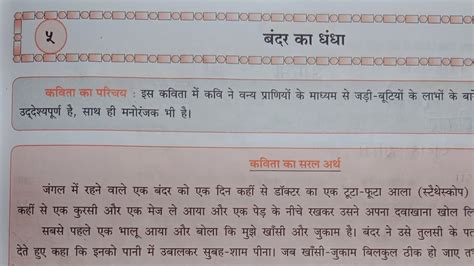 ५
बंदर का धंधा
कविता का परिचय : इस कविता में कवि ने वन्य प्राणियों के माध्यम से जड़ी-बूटियों के लाभों के बारे
उद्देश्यपूर्ण है, साथ ही मनोरंजक भी है।
कविता का सरल अर्थ
जंगल में रहने वाले एक बंदर को एक दिन कहीं से डॉक्टर का एक टूटा-फूटा आला (स्टैथेस्कोप)
कहीं से एक कुरसी और एक मेज ले आया और एक पेड़ के नीचे रखकर उसने अपना दवाखाना खोल
सबसे पहले एक भालू आया और बोला कि मुझे खाँसी और जुकाम है। बंदर ने उसे तुलसी के
देते हुए कहा कि इनको पानी में उबालकर सुबह-शाम पीना। जब खाँसी-जुकाम बिलकुल ठीक हो जाए